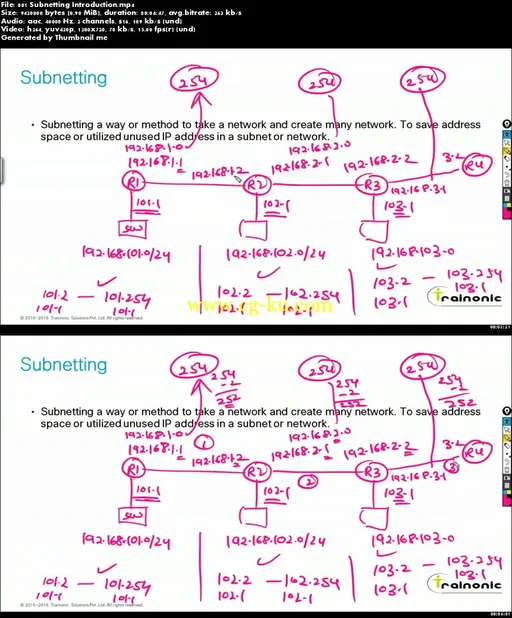 File: 001 Subnetting Introduction.mp4
Size: 9420800 bytes (8.98 MiB), duration: 00:04:47, avg.bitrate: 263 kb/s
Audio: aac, 48000 Hz, 2 channels, s16, 189 kb/s (und)
Video: h264, yuv420p, 1280x720, 70 kb/s, 15.00 fps(r) (und)
Generated by Thumbnail me
Subnetting
254
254
254
• Subnetting a way or method to take a network and create many network. To save address
space or utilized unused IP address in a subnet or network.
192.168.1.0
192.168.2.0
192.168.1.1
192.168.1.2
192.168.2.1
192.168.2.2
3.2
R1
R2
R3
R4
192.168.3.1
101.1
102.1
103.1
SW
192.168.101.0/24
192.168.102.0/24
192.168.103.0
101.2 — 101.254
102.2 — 102.254
103.2 — 103.254
101.1
101.1
102.1
102.1
103.1
103.1
Trainonic
www.cg-ku.com
© 2015-2016 Trainonic Solutions Pvt. Ltd. All rights reserved.
00:03:21
Subnetting
254
254
254
254
-2
252
254
-2
252
254
-2
252
• Subnetting a way or method to take a network and create many network. To save address
space or utilized unused IP address in a subnet or network.
192.168.1.0
1
192.168.2.0
192.168.1.1
192.168.1.2
192.168.2.1
192.168.2.2
3.2
3
R1
R2
R3
R4
2
192.168.3.1
101.1
102.1
103.1
SW
192.168.101.0/24
192.168.102.0/24
192.168.103.0
101.2 — 101.254
102.2 — 102.254
103.2 — 103.254
101.1
101.1
102.1
102.1
103.1
103.1
Trainonic
© 2015-2016 Trainonic Solutions Pvt. Ltd. All rights reserved.
00:04:01